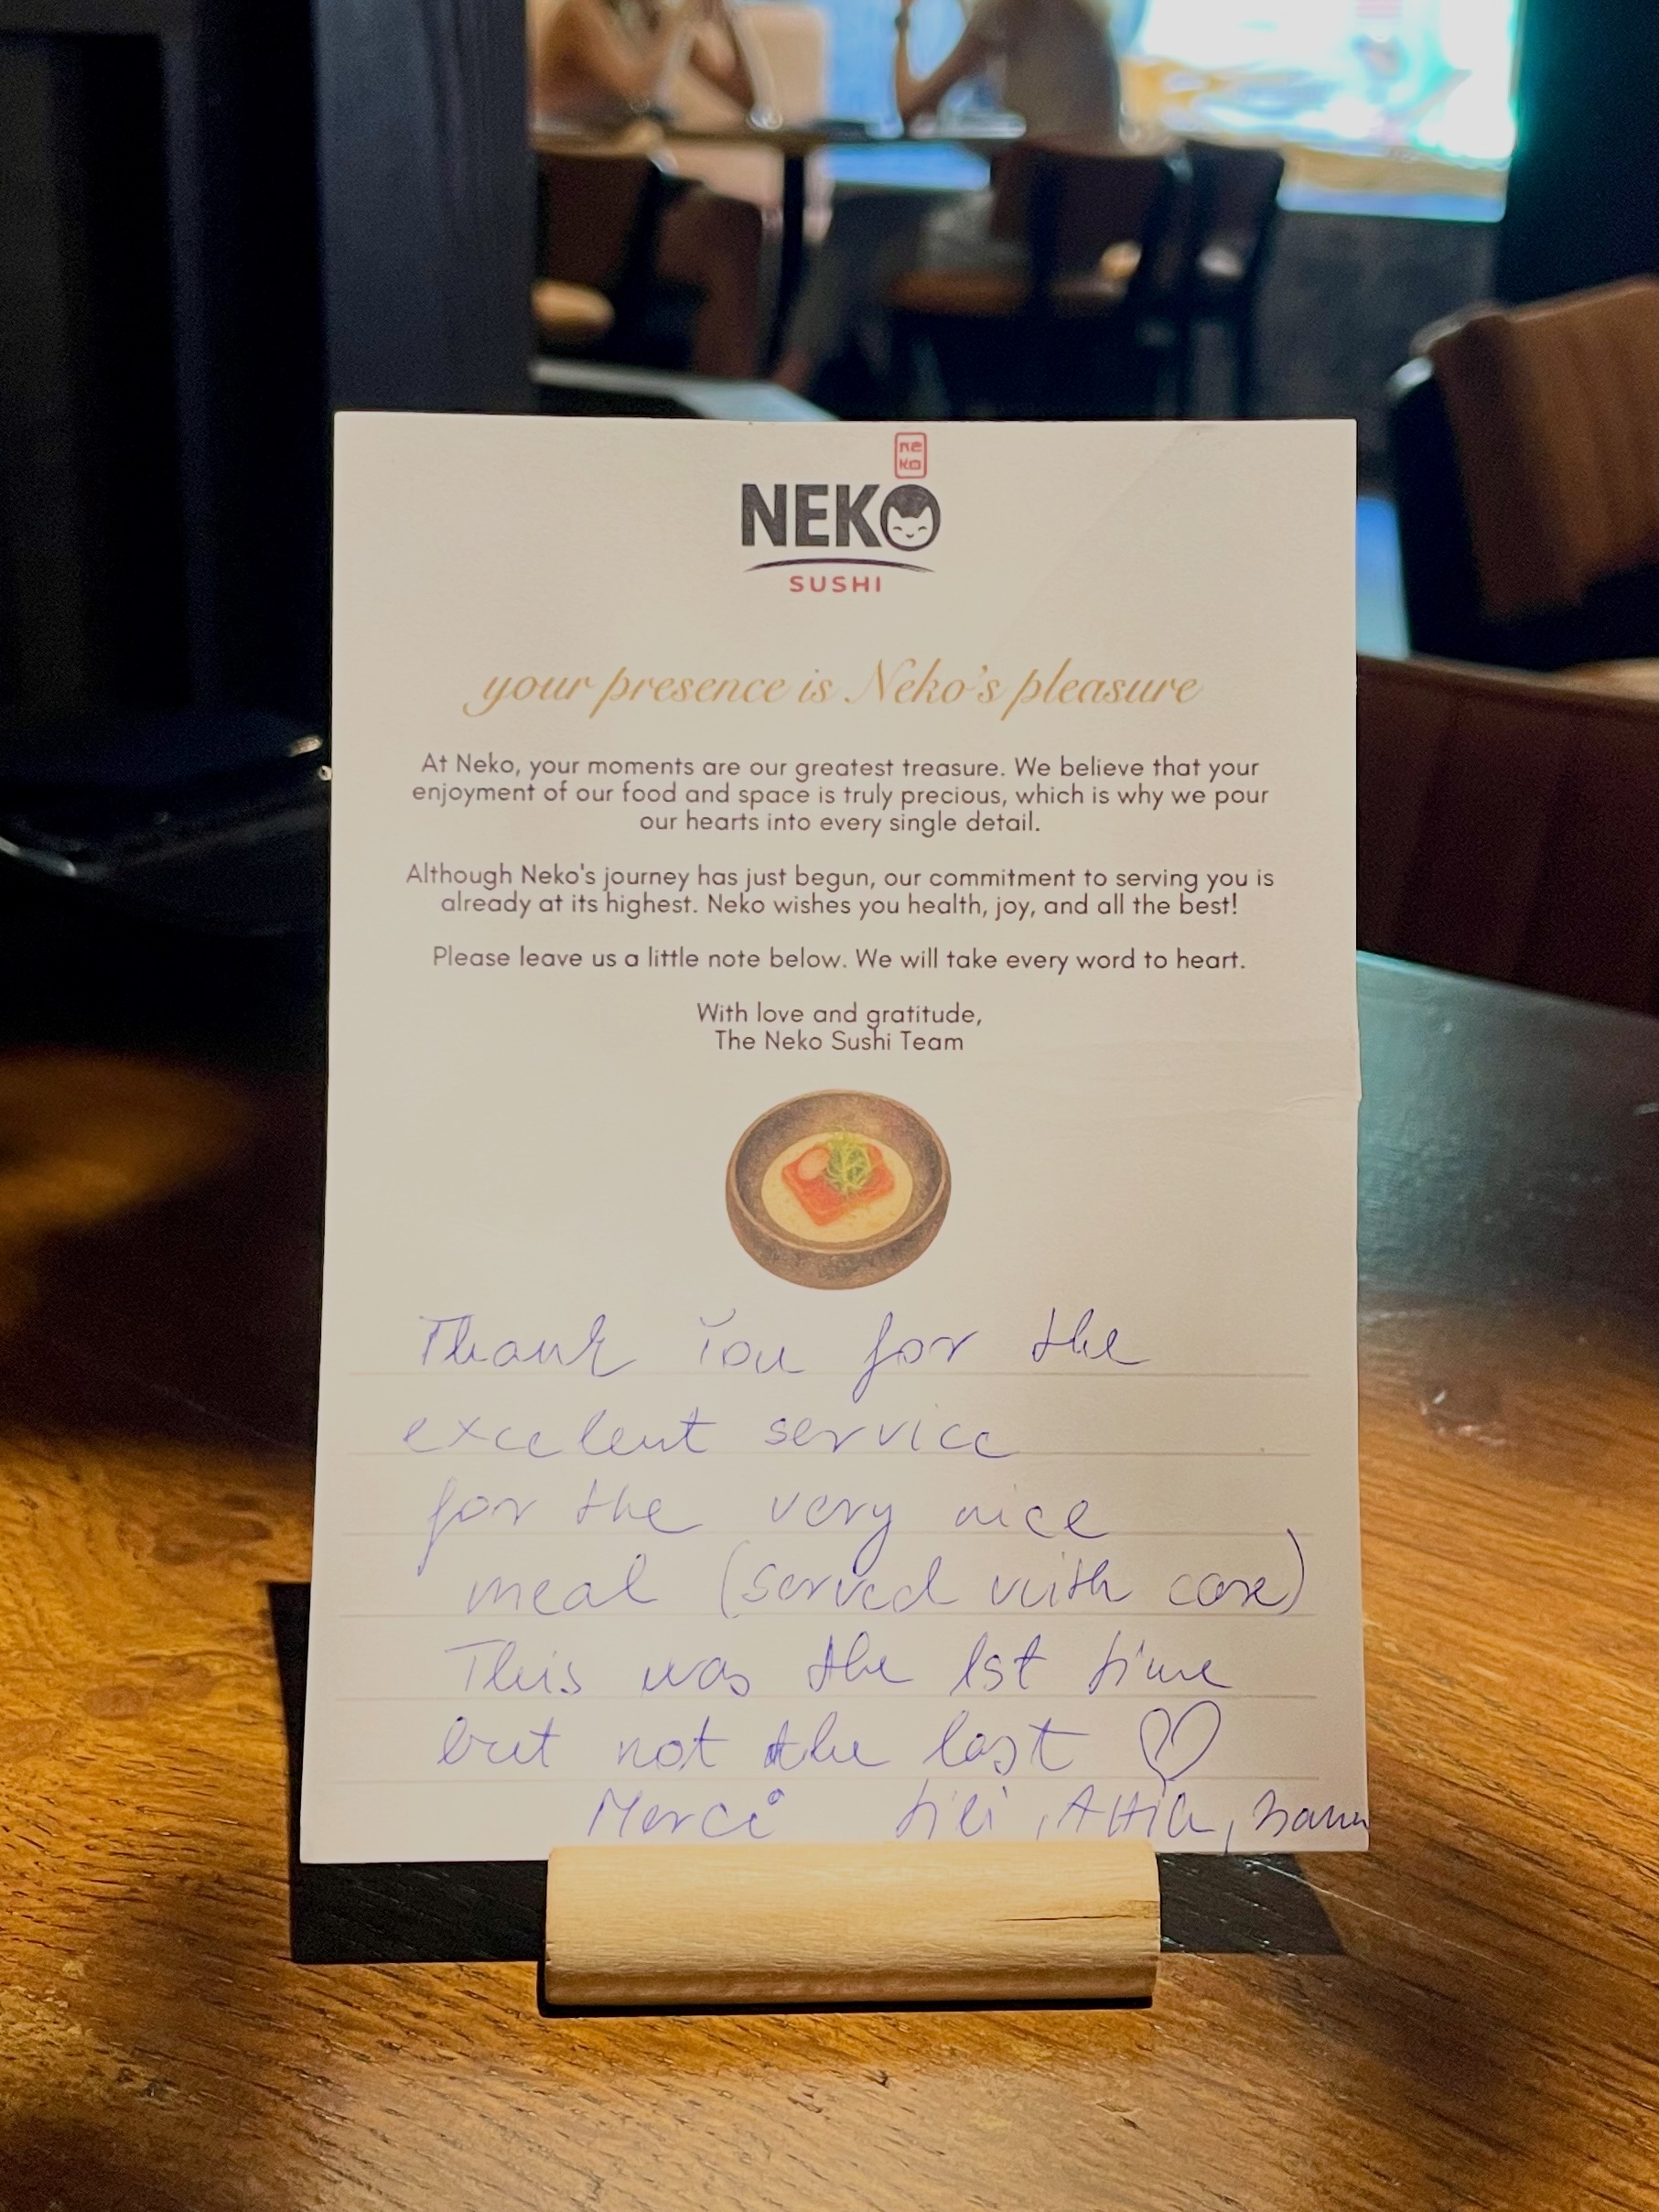 ne
ko
NEKO
SUSHI
your presence is Neko's pleasure
At Neko, your moments are our greatest treasure. We believe that your
enjoyment of our food and space is truly precious, which is why we pour
our hearts into every single detail.
Although Neko's journey has just begun, our commitment to serving you is
already at its highest. Neko wishes you health, joy, and all the best!
Please leave us a little note below. We will take every word to heart.
With love and gratitude,
The Neko Sushi Team
Thank You for the
excelent service
for the very nice
meal (served with care)
This was the 1st time
but not the last ♡
Merci